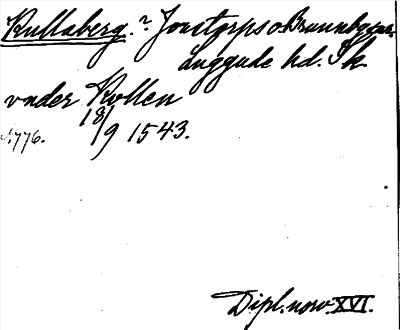 Kullaberg. ? Jonstorps o. Brunnby sn.
Luggude hd. Sk.
vnder Kollen
18/9 1543.
s. 776.
Dipl. norv. XVI.